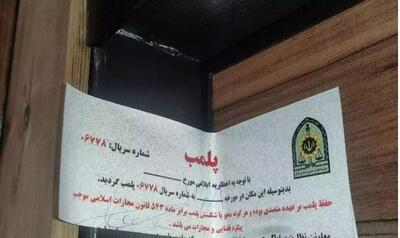 شماره سریال: ۰۶۷۷۸
پلمب
با توجه به اخطاریه ابلاغی مورخ
بدینوسیله این مکان در مورخه به شماره سریال ۰۶۷۷۸ پلمب گردید.
حفظ پلمب بر عهده متصدی بوده و هرگونه محو یا شکستن پلمب برابر ماده ۵۴۳ قانون مجازات اسلامی موجب
پیگرد قضایی و مجازات می باشد.
معاونت نظارت